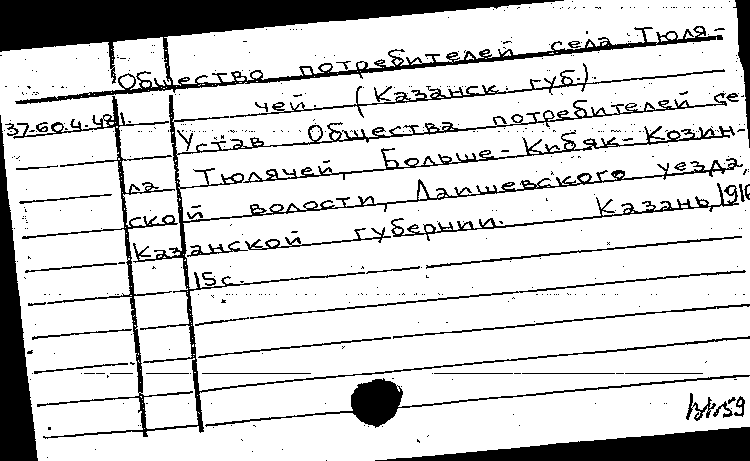 Общество потребителей села Тюля-
чей. (Казанск. губ.).
37-60.4.481.
Устав Общества потребителей се-
ла Тюлячей, Больше-Кибяк-Козин-
ской волости, Лаишевского уезда,
Казанской губернии. Казань, 1916
15 с.